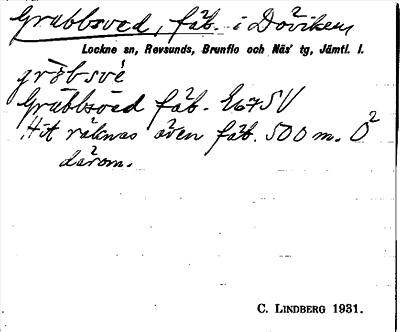 Grubbsved, fäb. i Dövikens
Lockne sn, Revsunds, Brunflo och Näs' tg, Jämtl. l.
gròbsvé
Grubbsved fäb. Ek7SV
Hit räknas även fäb. 500 m. Ö
därom.
C. LINDBERG 1931.